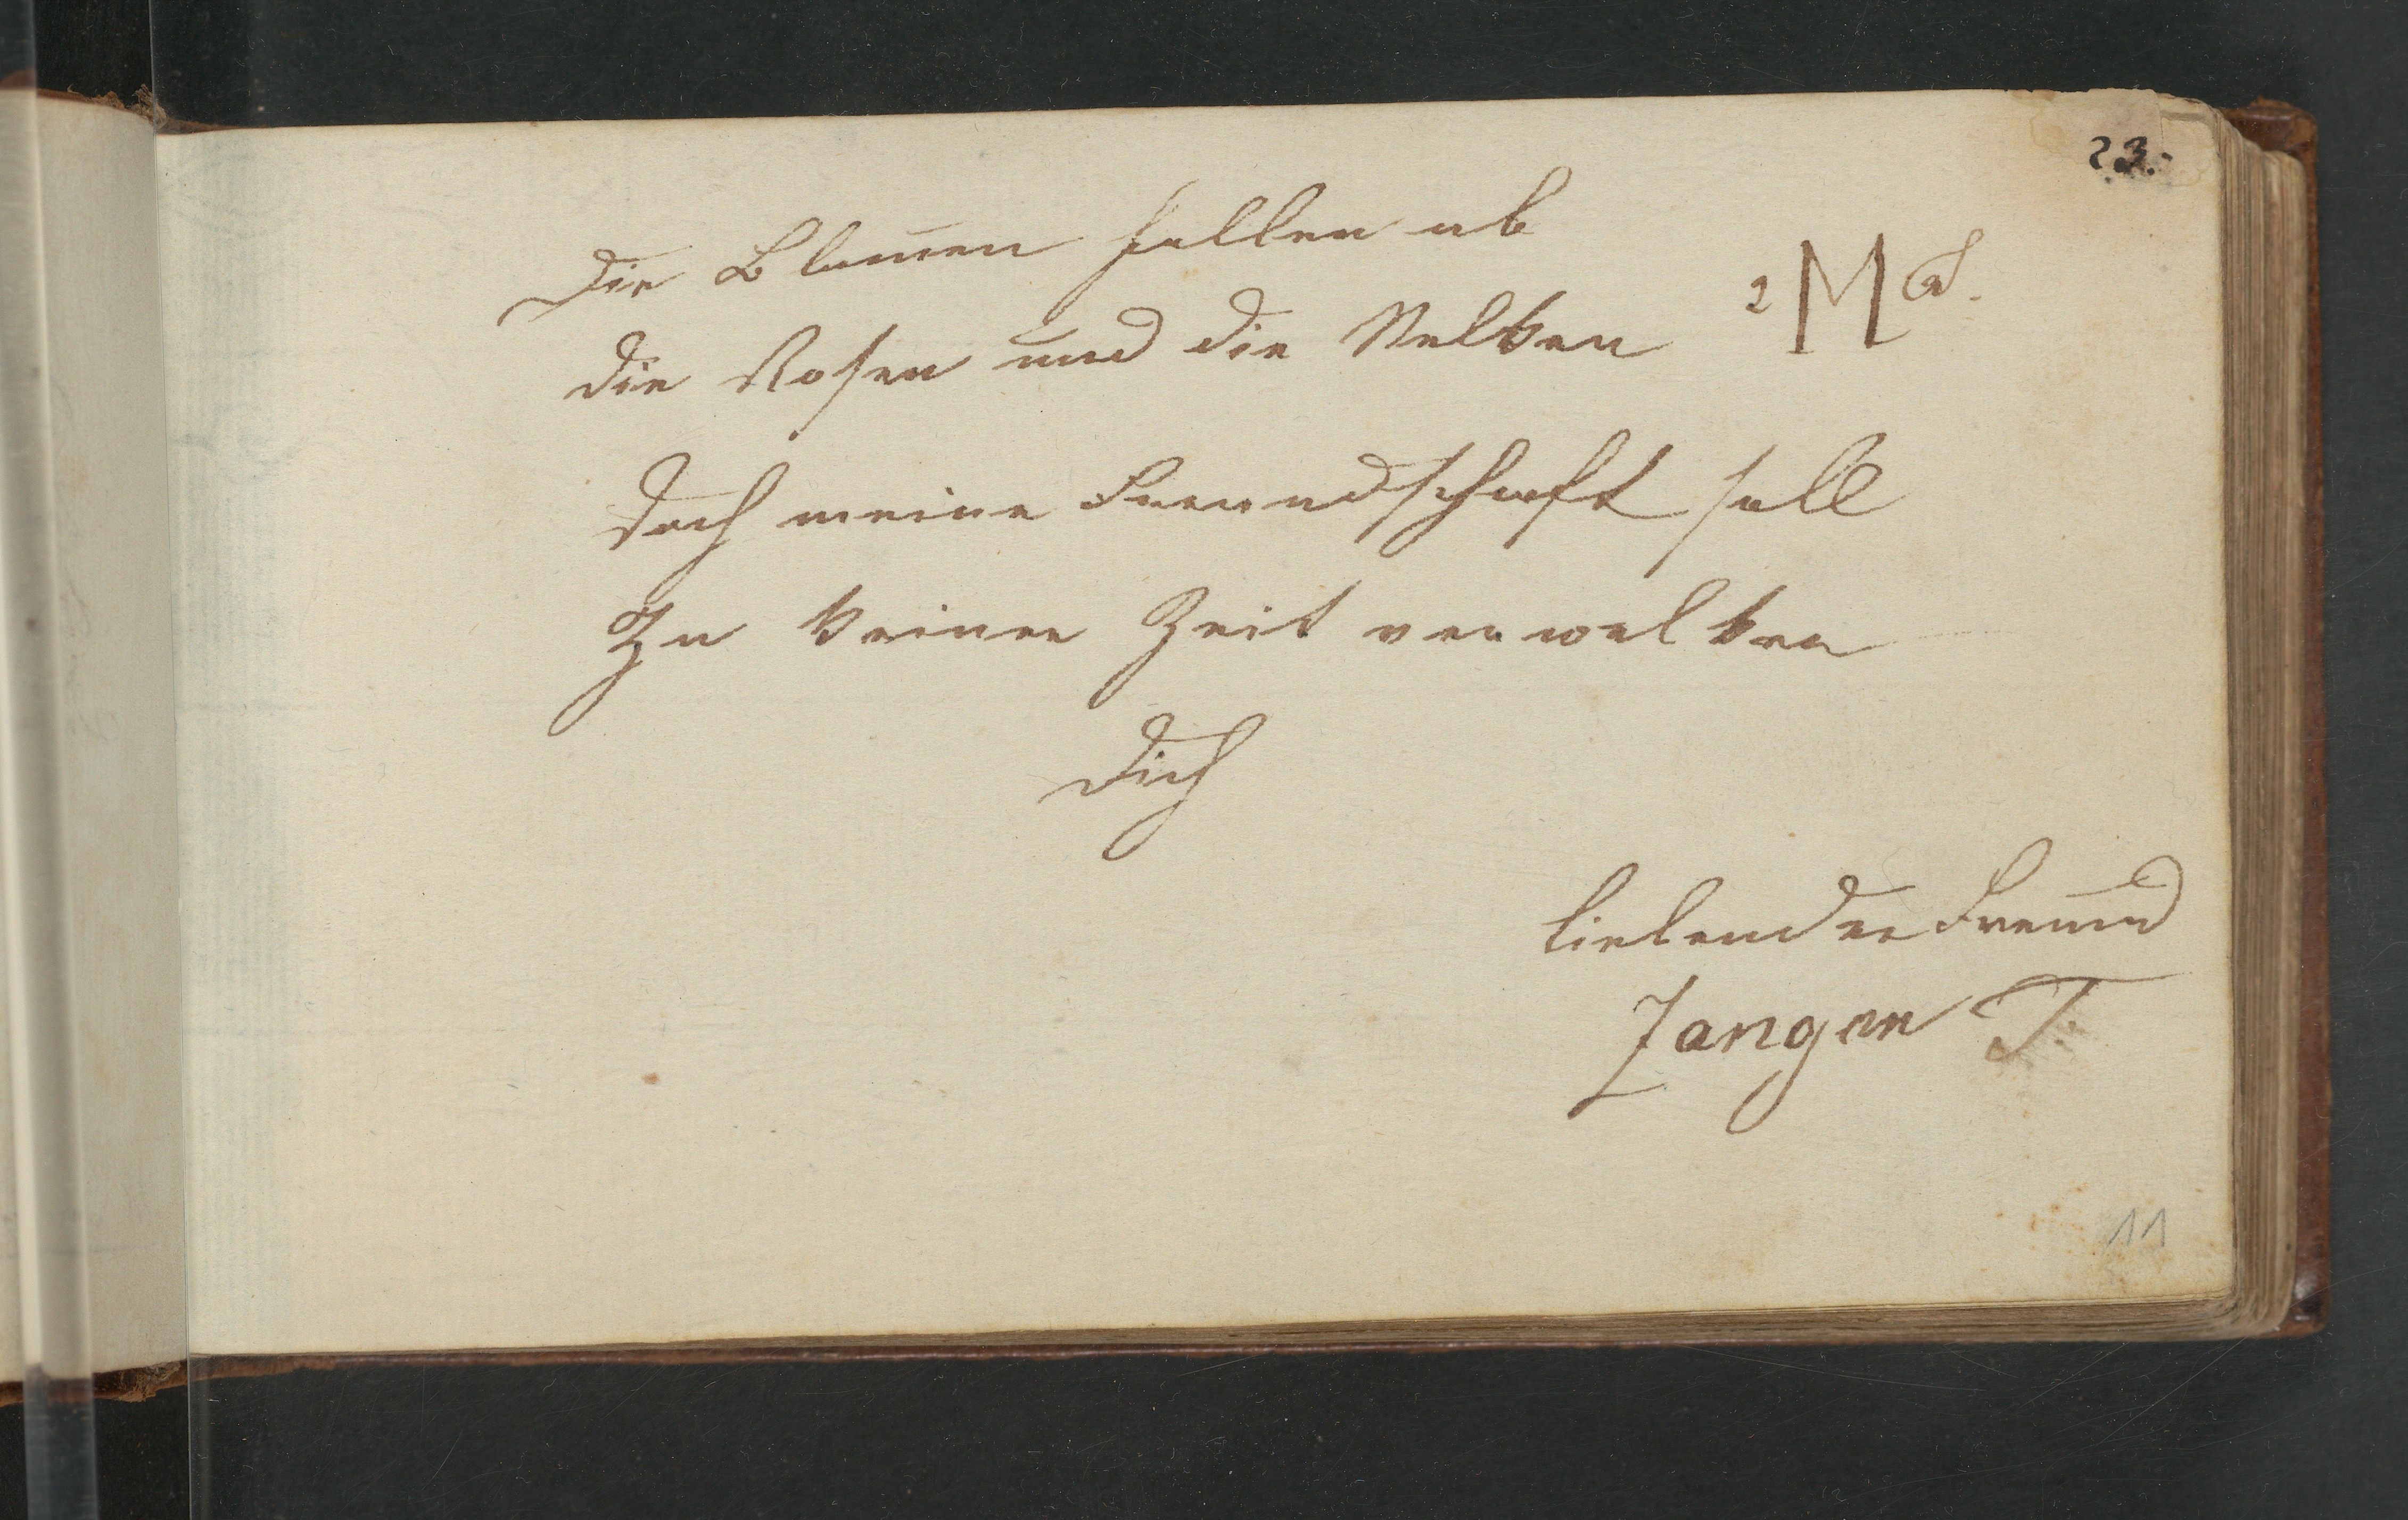 23.
Die Blumen fallen ab
die Rosen und die Nelken
2 M
doch meine Freundschaft soll
Zu keiner Zeit verwelken
Dich
liebender Freund
Zangen T.
11